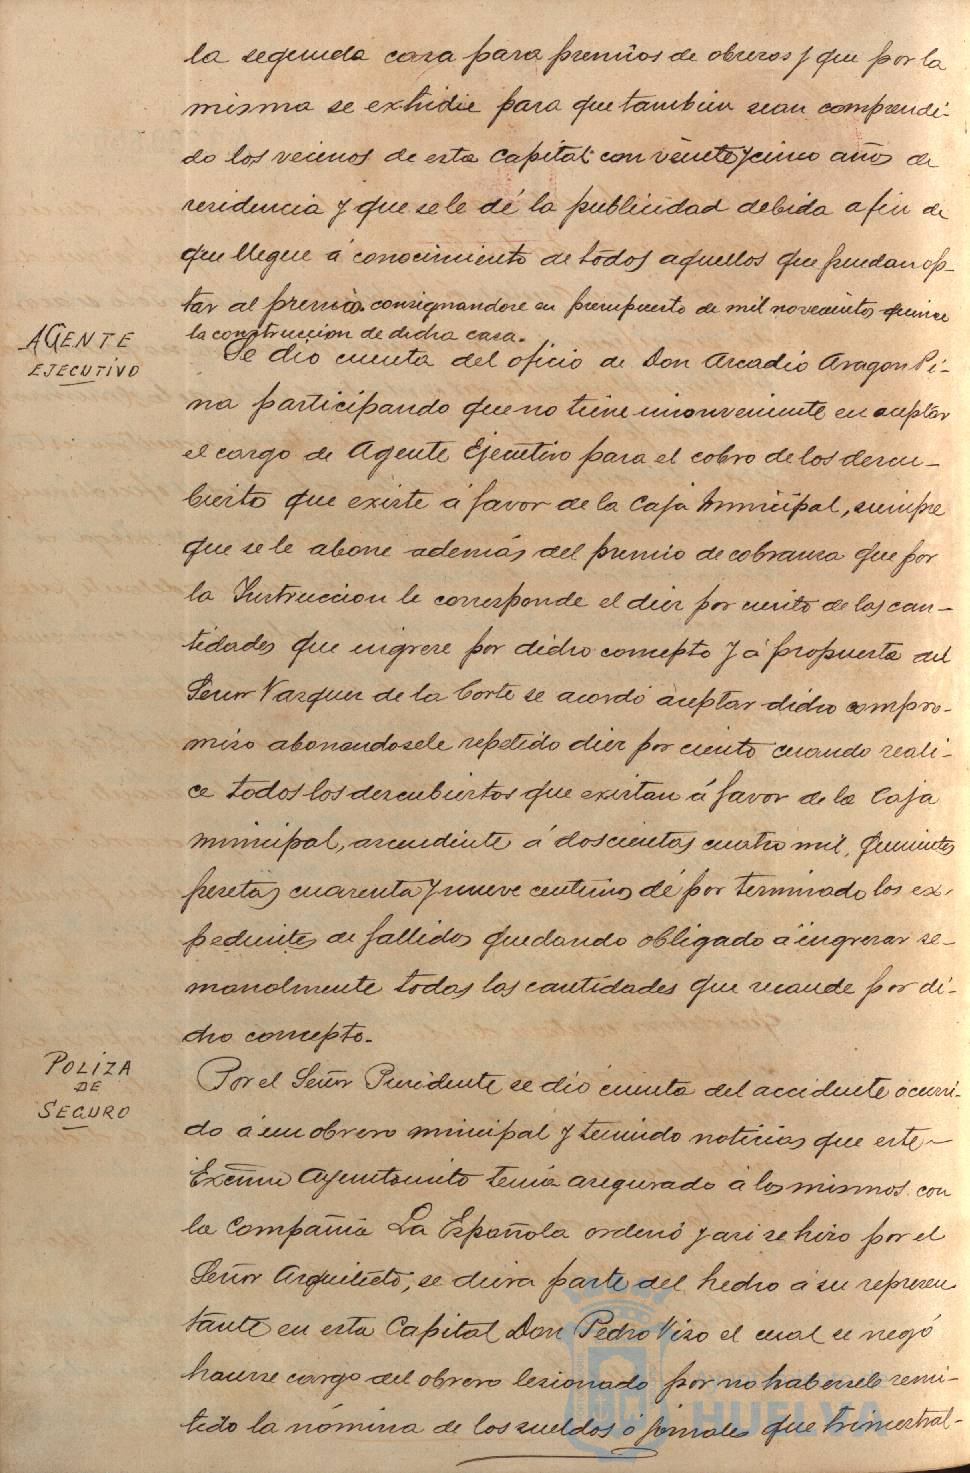 la segunda casa para premios de obreros y que por la
misma se estudie para que tambien sean comprendi-
do los vecinos de esta Capital con veinte y cinco años de
residencia y que se le dé la publicidad debida a fin de
que llegue á conocimiento de todos aquellos que puedan op-
tar al premio consignandose en presupuesto de mil novecientos quince
la construccion de dicha casa.
AGENTE
EJECUTIVO
Se dió cuenta del oficio de Don Arcadio Aragon Pi-
na participando que no tiene inconveniente en aceptar
el cargo de Agente Ejecutivo para el cobro de los descu-
bierto que existe á favor de la Caja Municipal, siempre
que se le abone además del premio de cobranza que por
la Instruccion le corresponde el diez por ciento de las can-
tidades que ingrese por dicho concepto y á propuesta del
Señor Vazquez de la Corte se acordó aceptar dicho compro-
miso abonandosele repetido diez por ciento cuando reali-
ce todos los descubiertos que existan á favor de la Caja
municipal, ascendiente á doscientas cuatro mil, quinientas
pesetas cuarenta y nueve centimos dé por terminado los ex-
pedientes de fallidos quedando obligado a ingresar se-
manalmente todas las cantidades que recaude por di-
cho concepto.
POLIZA
DE
SEGURO
Por el Señor Presidente se dió cuenta del accidente ocurri-
do á un obrero municipal y teniendo noticias que este
Excmo Ayuntamiento tenia asegurado á los mismos con
la Compañia La Española ordenó y asi se hizo por el
Señor Arquitecto, se diera parte del hecho á su represen
tante en esta Capital Don Pedro Vizo el cual se negó
hacerse cargo del obrero lesionado por no habersele remi-
tido la nómina de los sueldos ó jornales que trimestral-
HUELVA